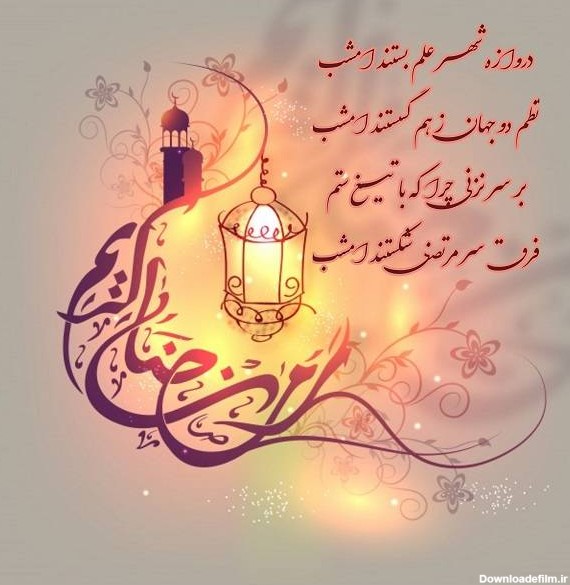 دروازه شهر علم بستند امشب
نظم دو جهان ز هم گسستند امشب
بر سر نزنی چرا که با تیغ ستم
فرق سر مرتضی شکستند امشب
رمضان كريم
Downloadefilm.ir